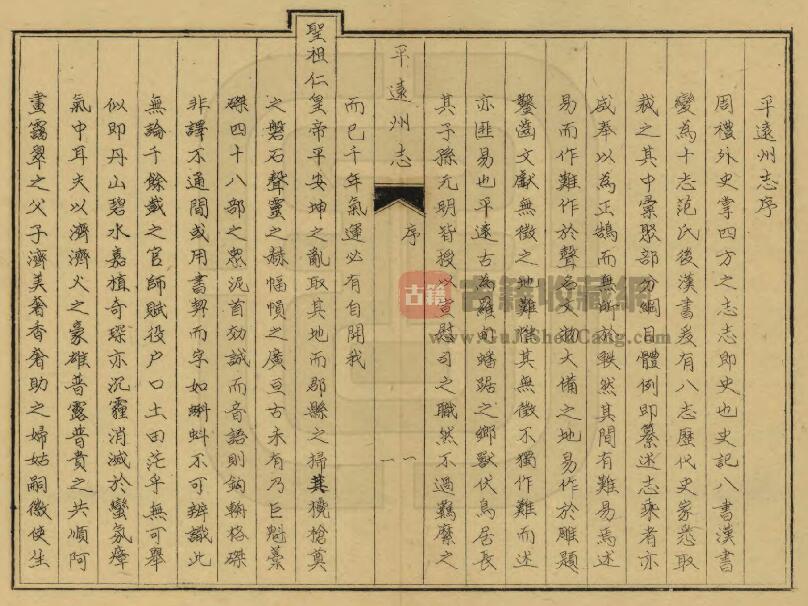 平遠州志序
周禮外史掌四方之志志即史也史記八書漢書
變為十志范氏後漢書爰有八志歷代史家悉取
裁之其中彙聚部分綱目體例即纂述志乘者亦
咸奉以為正鵠而無所於軼然其間有難易焉述
易而作難作於聲名文物大備之地易作於雕題
鑿齒文獻無徵之地難惟其無徵不獨作難而述
亦匪易也平遠古為羅甸蟠踞之鄉獸伏鳥居長
其子孫元明皆授以宣慰司之職然不過羈縻之
平遠州志
序
一
而已千年氣運必有自開我
聖祖仁皇帝平安坤之亂取其地而郡縣之掃其欃槍奠
之磐石聲靈之赫幅幀之廣亘古未有乃巨魁藁
磔四十八部之眾泥首効誠而音語則鈎輈格磔
非譯不通間或用書契而字如蝌蚪不可辨識此
無論千餘載之官師賦役户口土田茫乎無可舉
似即丹山碧水嘉植奇琛亦沉霾消滅於蠻氛瘴
氣中耳夫以濟濟火之豪雄普露普貴之共順阿
畫靄翠之父子濟美奢香奢助之婦姑嗣徽使生
古籍
古籍收藏網
www.GuJiShuCang.com